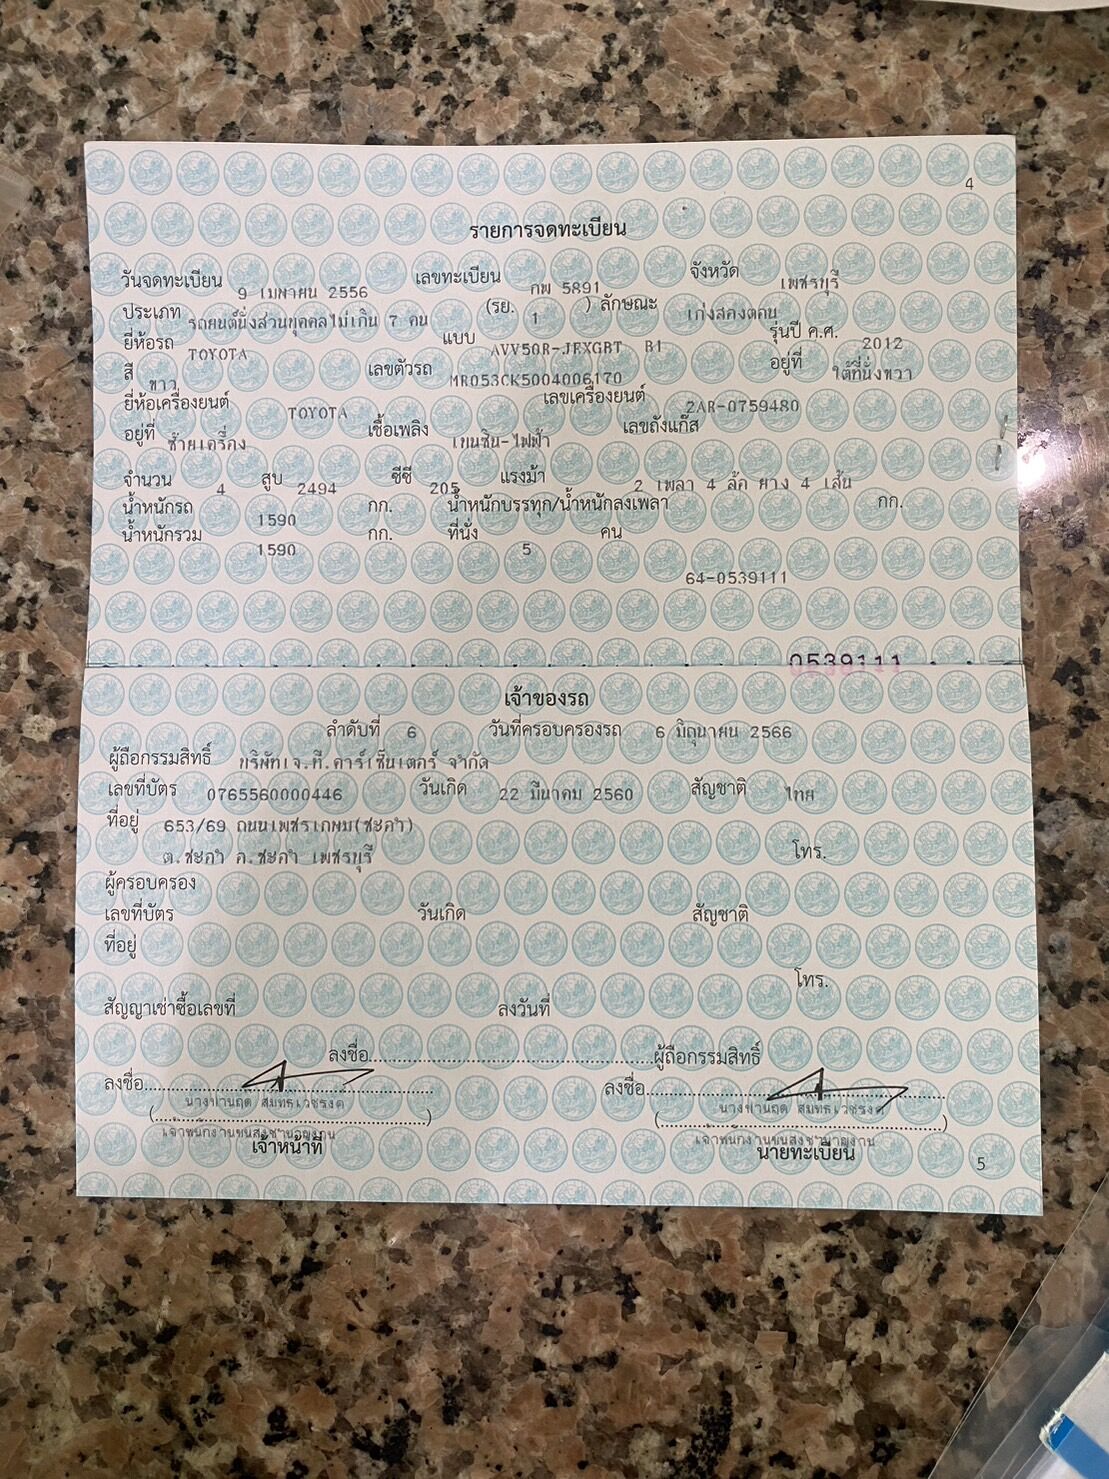 4
รายการจดทะเบียน
วันจดทะเบียน 9 เมษายน 2556 เลขทะเบียน กพ 5891 จังหวัด เพชรบุรี
ประเภท รถยนต์นั่งส่วนบุคคลไม่เกิน 7 คน (รย. 1 ) ลักษณะ เก๋งสองตอน
ยี่ห้อรถ TOYOTA แบบ AVV50R-JEXGBT B1 รุ่นปี ค.ศ. 2012
สี ขาว เลขตัวรถ MR053CK5004006170 อยู่ที่ ใต้ที่นั่งขวา
ยี่ห้อเครื่องยนต์ TOYOTA เลขเครื่องยนต์ 2AR-0759480
อยู่ที่ ซ้ายเครื่อง เชื้อเพลิง เบนซิน-ไฟฟ้า เลขถังแก๊ส
จำนวน 4 สูบ 2494 ซีซี 205 แรงม้า 2 เพลา 4 ล้อ ยาง 4 เส้น
น้ำหนักรถ 1590 กก. น้ำหนักบรรทุก/น้ำหนักลงเพลา กก.
น้ำหนักรวม 1590 กก. ที่นั่ง 5 คน
64-0539111
0539111
เจ้าของรถ
ลำดับที่ 6 วันที่ครอบครองรถ 6 มิถุนายน 2566
ผู้ถือกรรมสิทธิ์ บริษัทเจ.ที.คาร์เซ็นเตอร์ จำกัด
เลขที่บัตร 0765560000446 วันเกิด 22 มีนาคม 2560 สัญชาติ ไทย
ที่อยู่ 653/69 ถนนเพชรเกษม(ชะอำ)
ต.ชะอำ อ.ชะอำ เพชรบุรี โทร.
ผู้ครอบครอง
เลขที่บัตร วันเกิด สัญชาติ
ที่อยู่
โทร.
สัญญาเช่าซื้อเลขที่ ลงวันที่
ลงชื่อ ผู้ถือกรรมสิทธิ์
ลงชื่อ ลงชื่อ
สมุทธเวชรงค์ สมุทธเวชรงค์
เจ้าพนักงานขนส่งชำนาญงาน เจ้าพนักงานขนส่งชำนาญงาน
เจ้าหน้าที่ นายทะเบียน
5